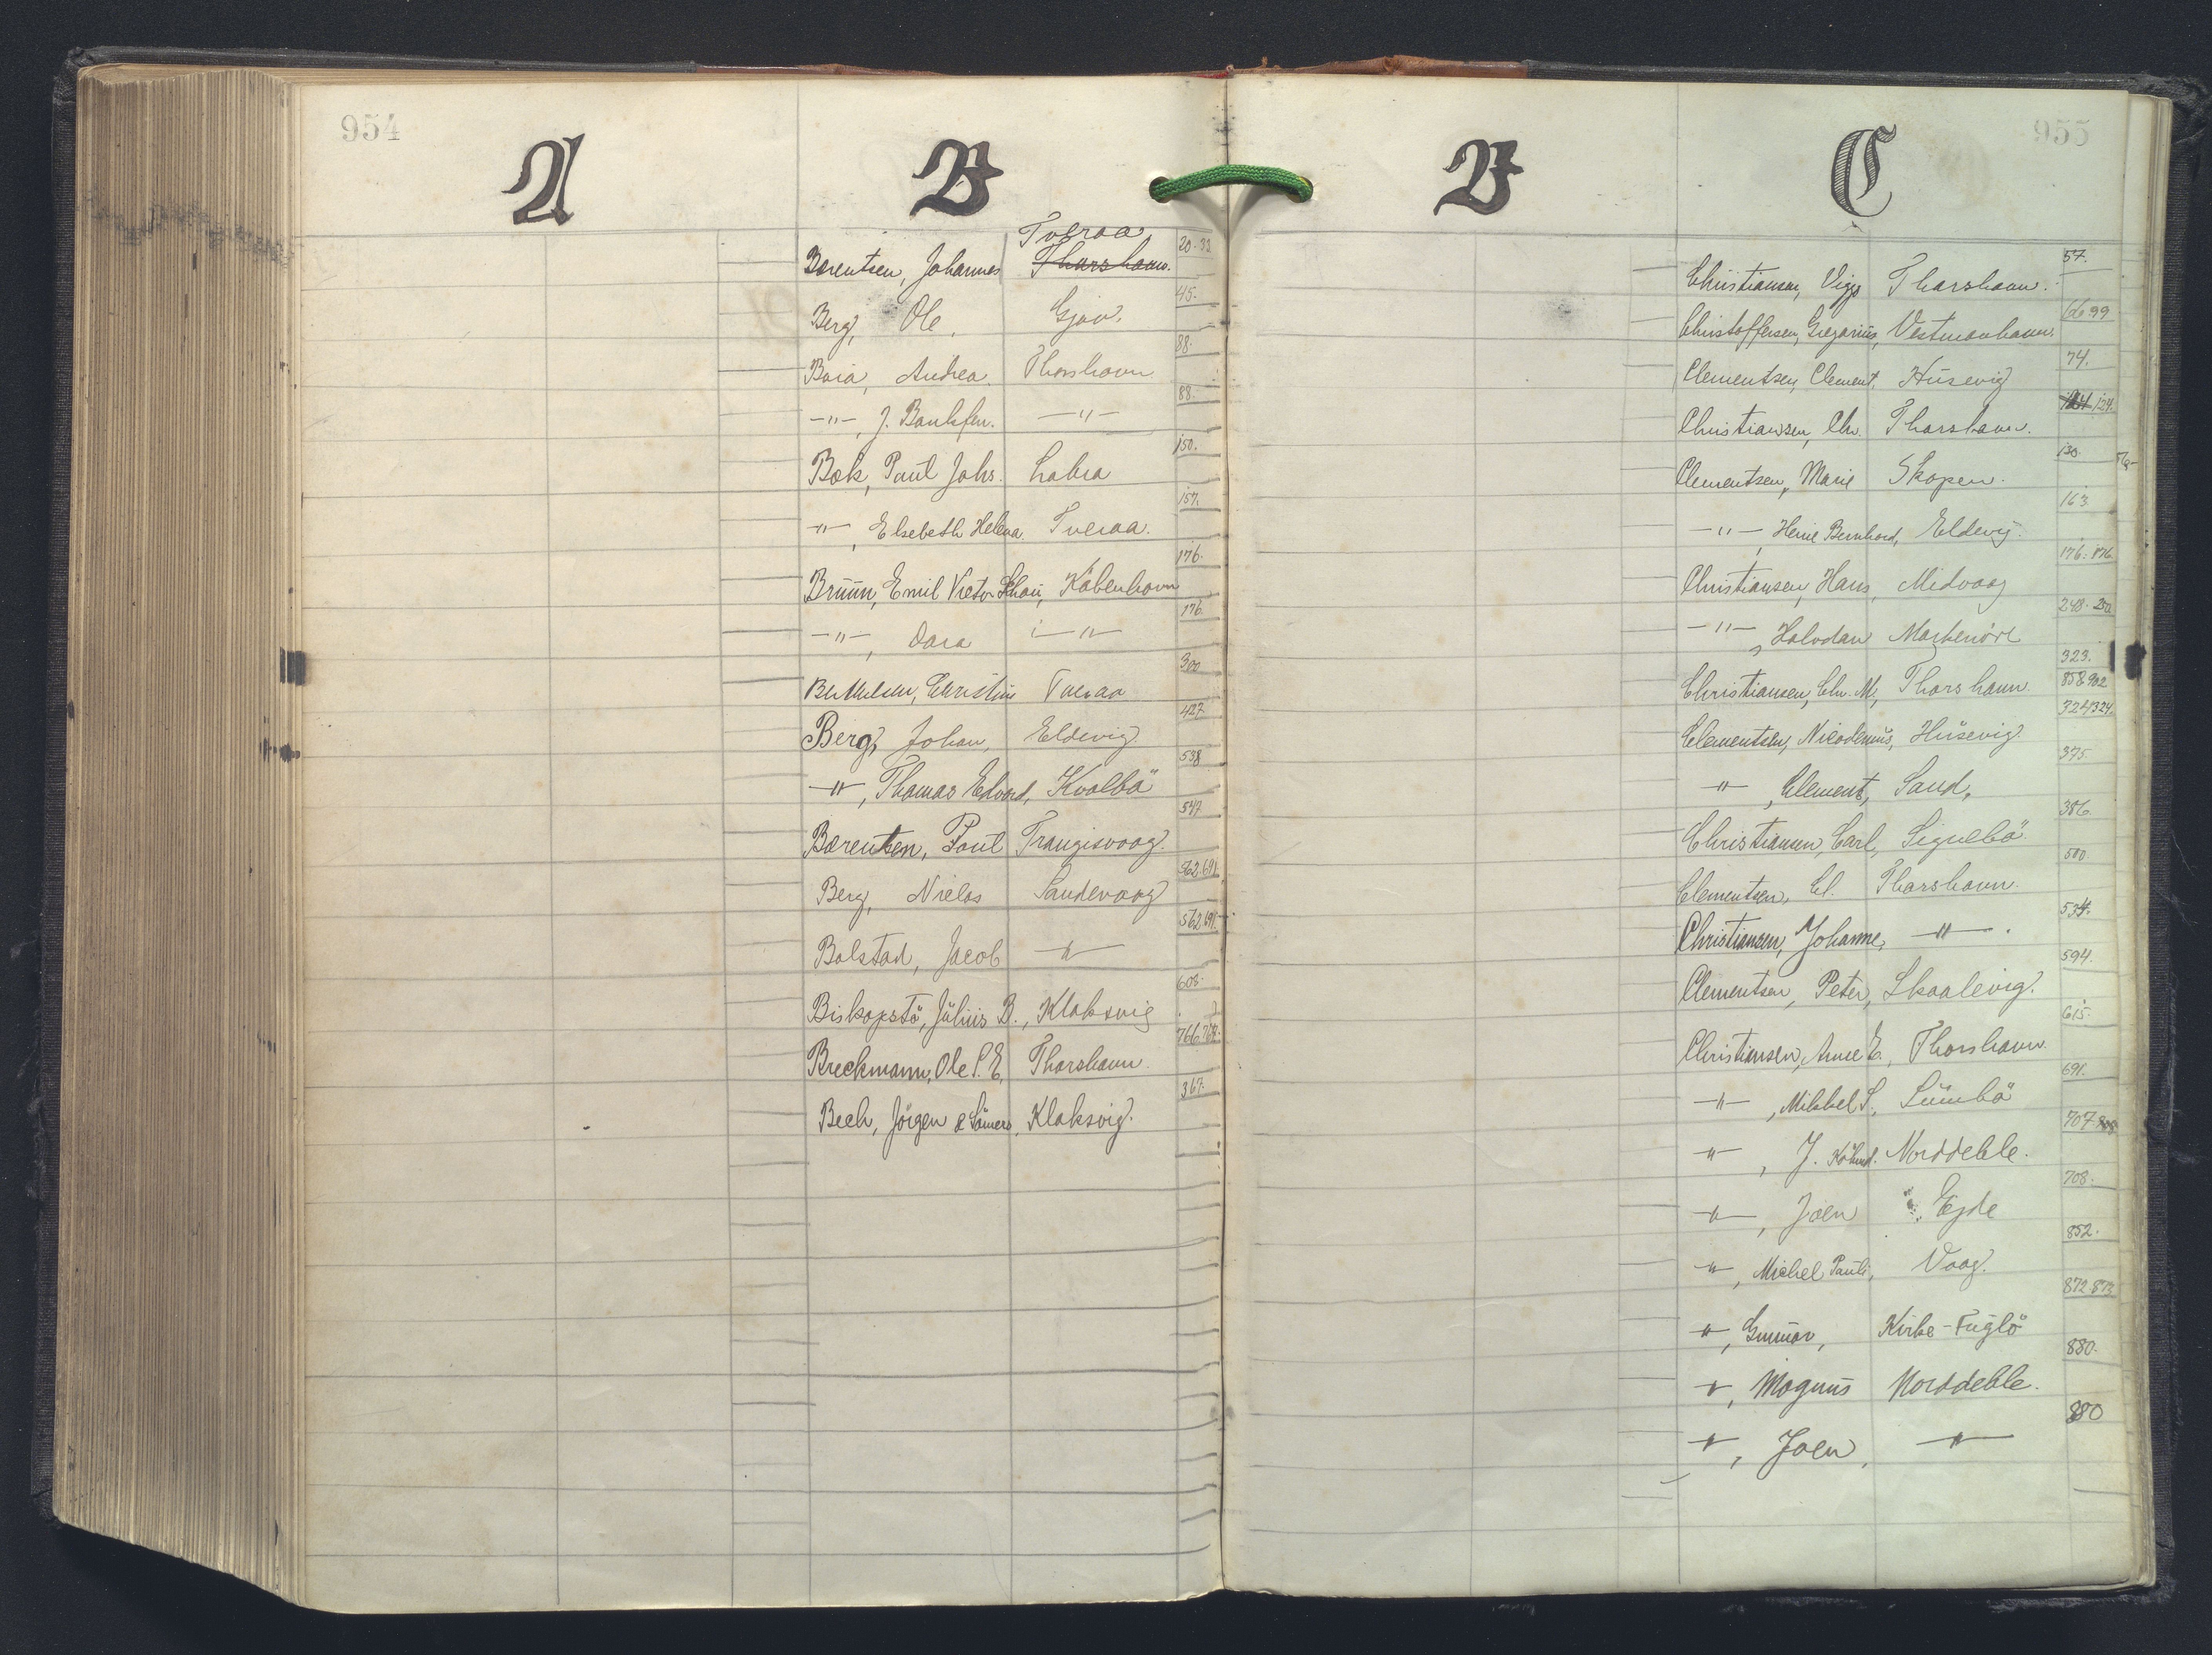 954
A
B
Tveraa
20-33
Barentsen, Johannes Thorshavn.
45.
Berg, Ole, Gjov.
88.
Baia, Andrea. Thorshavn
88.
-"-, J. -"-
150.
Bæk, Poul Johs. Labra
157.
-"-, Elsebeth Helena. Tveraa.
176.
Bruun, Emil Victor Schou, København
176
-"-, Dara -"-
300
Berthelsen, Christine Tveraa
427
Berg, Johan, Eldevig
538
-"-, Thomas Edvard, Kvalbö
547
Barentsen, Poul Trangisvaag.
562.691
Berg, Nielas Sandevaag
562 691.
Bolstad, Jacob -"-
603.
Biskopstö, Julius B., Klaksvig
766.767.
Breckmann, Ole P. E. Thorshavn.
367.
Bech, Jörgen & Sönner, Klaksvig.
955
B
C
57.
Christiansen, Viggo Thorshavn.
66.99
Christoffersen, Gregorius, Vestmanhavn.
74.
Clementsen, Clement, Husevig
124.
Christiansen, Chr. Thorshavn.
130.
Clementsen, Marie Skopen.
163
-"-, Heine Bernhard, Eldevig.
176. 876
Christiansen, Hans, Midvaag
248. 250
-"-, Halvdan
323.
858 902
Christiansen, Chr. M., Thorshavn.
324 324.
Clementsen, Nicodemus, Husevig.
375.
-"-, Clement, Sand,
386.
Christiansen, Carl, Sigulbö
500.
Clementsen, Cl. Thorshavn.
534.
Christiansen, Johanne, -"-.
594.
Clementsen, Peter, Skaalevig.
615.
Christiansen, Anne E., Thorshavn.
691.
-"-, Mikkel S., Sumbö
707
-"-, J. Norddeble.
708.
-"-, Joen Ejde
852.
-"-, Michel Pauli, Vaag.
872.873
-"-, Gunnar, Kirke-Fuglö
880.
-"-, Magnus Norddeble.
880
-"-, Joen, -"-